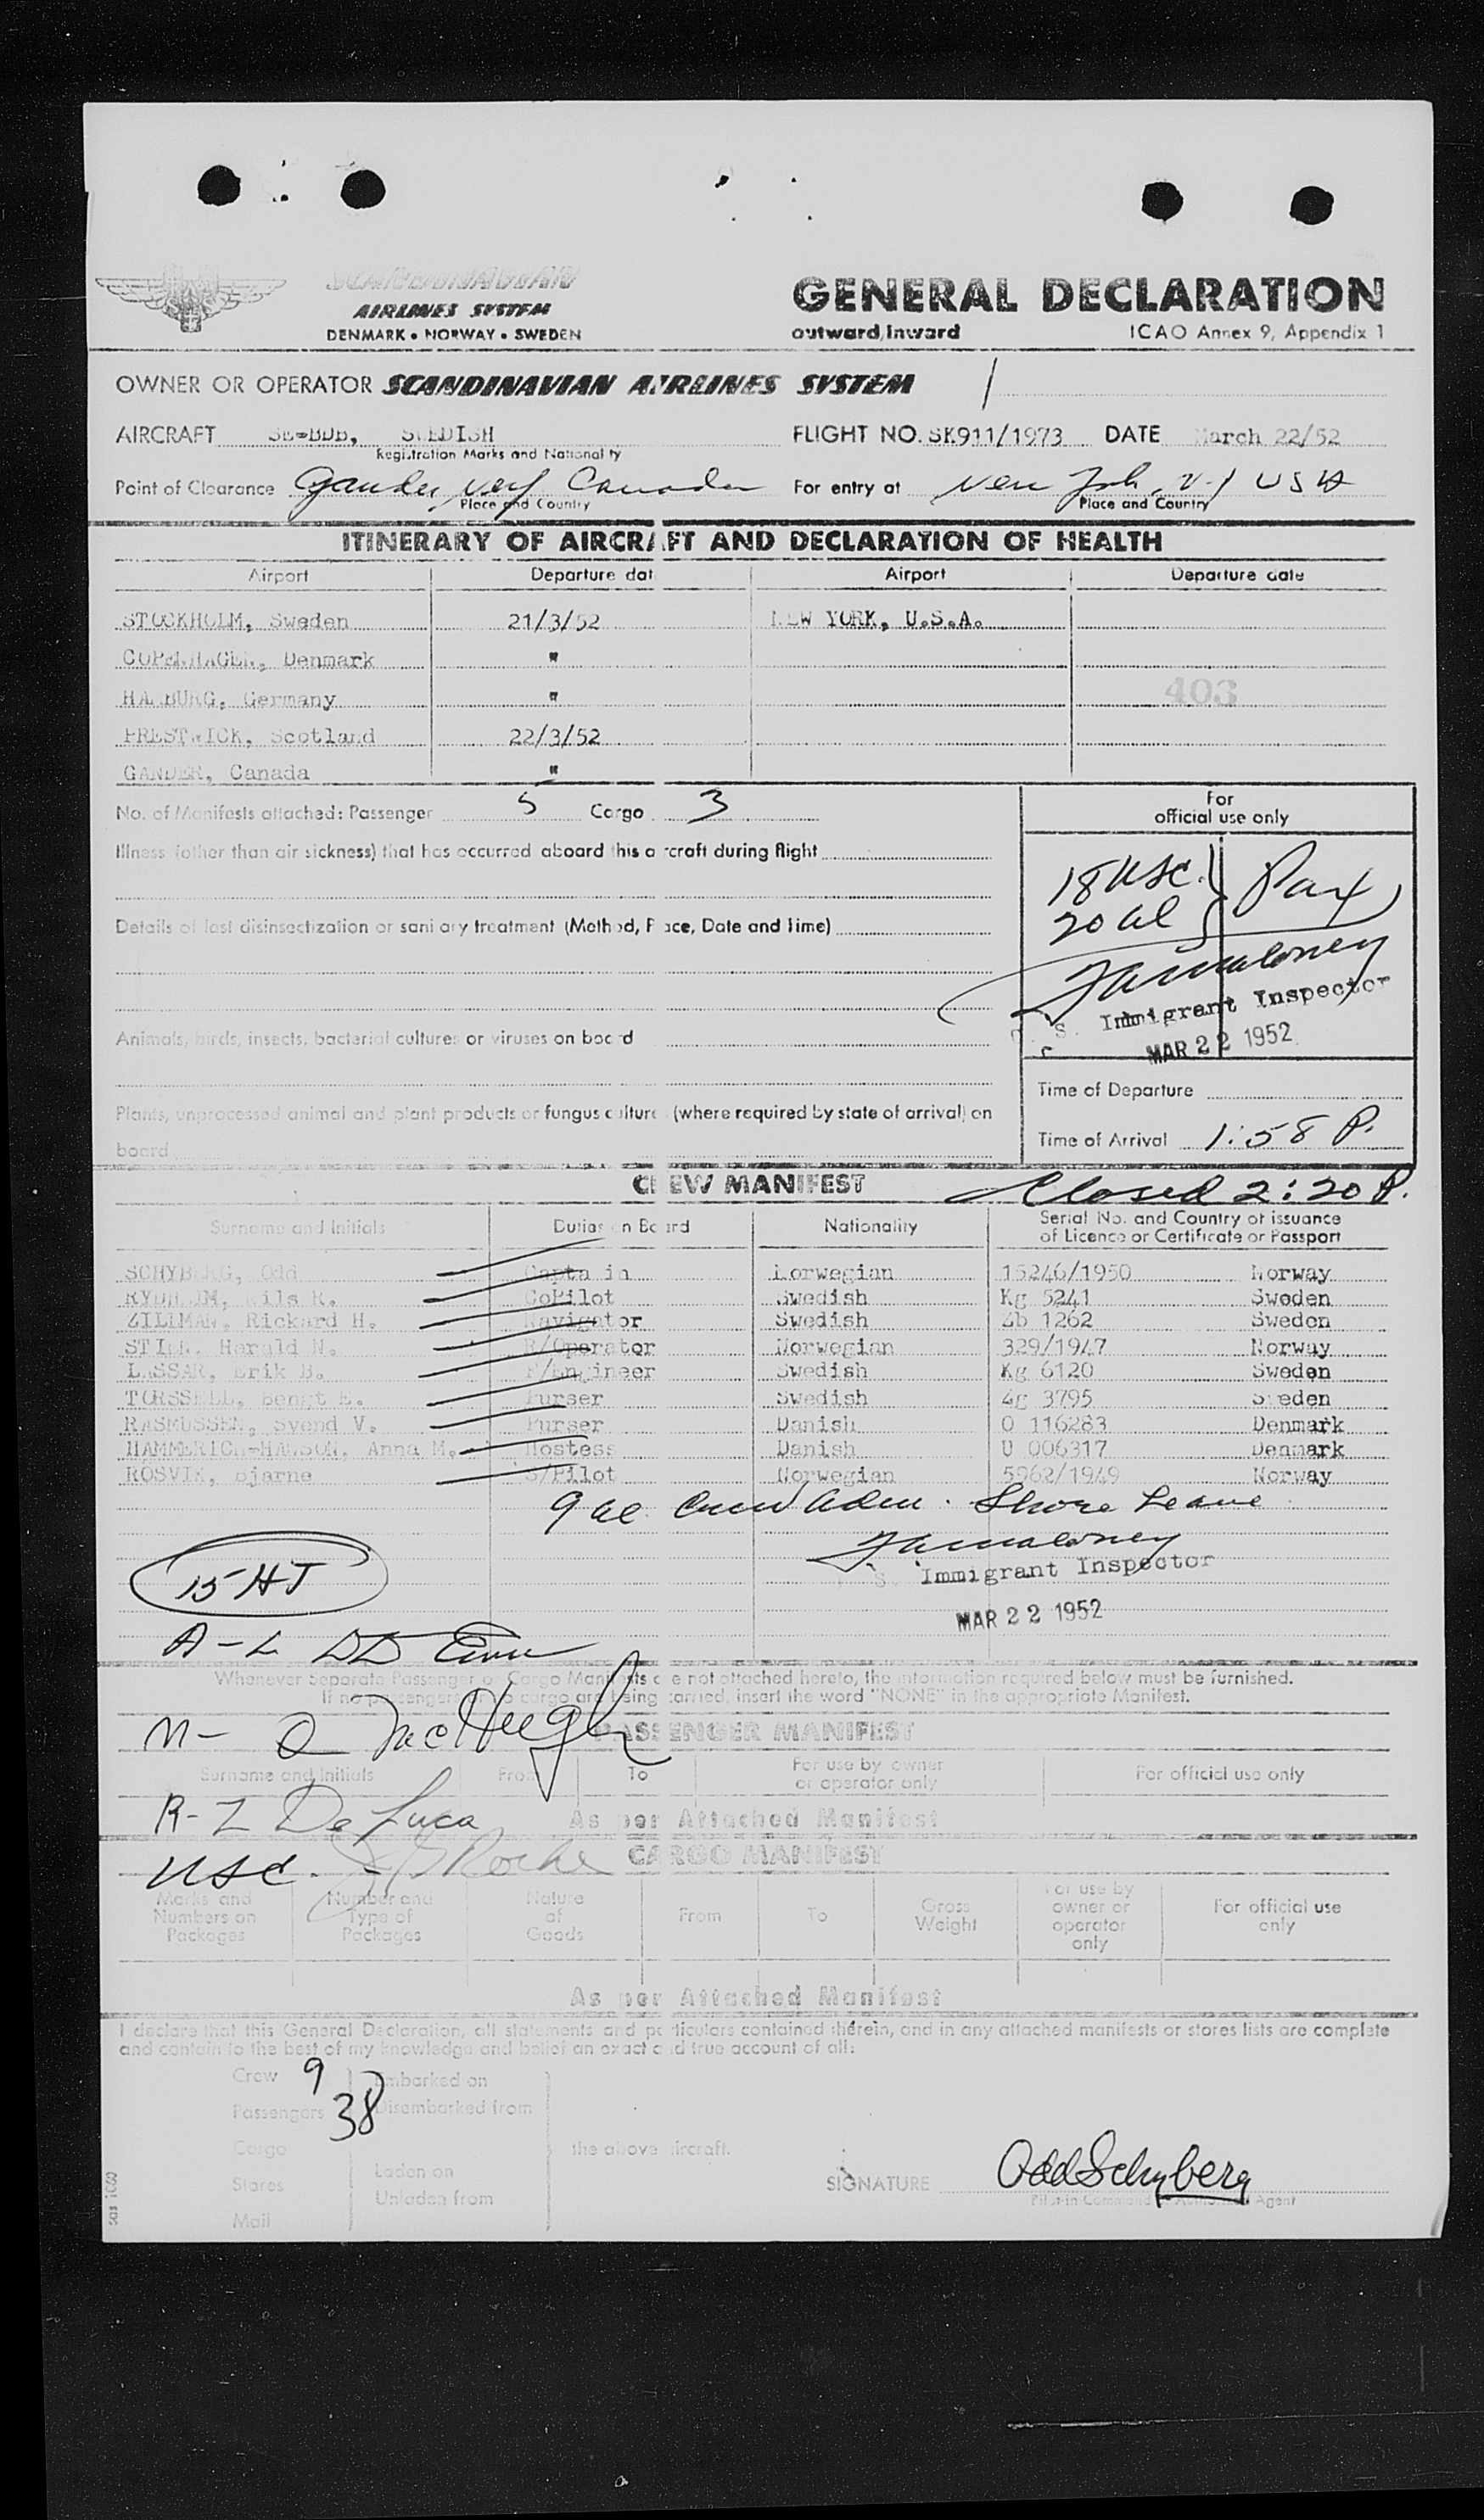 SCANDINAVIAN
AIRLINES SYSTEM
DENMARK • NORWAY • SWEDEN
GENERAL DECLARATION
outward/Inward ICAO Annex 9, Appendix 1
OWNER OR OPERATOR SCANDINAVIAN AIRLINES SYSTEM
AIRCRAFT SE-BDB, SWEDISH FLIGHT NO. SK911/1973 DATE March 22/52
Registration Marks and Nationality
Point of Clearance Gander, Canada For entry at New York, N.Y USA
Place and Country Place and Country
ITINERARY OF AIRCRAFT AND DECLARATION OF HEALTH
Airport Departure dat Airport Departure date
STOCKHOLM, Sweden 21/3/52 NEW YORK, U.S.A.
COPENHAGEN, Denmark "
HAMBURG, Germany " 403
PRESTWICK, Scotland 22/3/52
GANDER, Canada "
No. of Manifests attached: Passenger 5 Cargo 3
For
official use only
Illness (other than air sickness) that has occurred aboard this aircraft during flight
18 USC.
20 al Pax
Details of last disinsectization or sanitary treatment (Method, Place, Date and Time)
Immigrant Inspector
MAR 22 1952
Animals, birds, insects, bacterial cultures or viruses on board
Time of Departure
Plants, unprocessed animal and plant products or fungus cultures (where required by state of arrival) on
board
Time of Arrival 1:58 P.
CREW MANIFEST Closed 2:20 P.
Surname and Initials Duties on Board Nationality Serial No. and Country of issuance
of Licence or Certificate or Passport
SCHYBERG, Odd Captain Norwegian 15246/1950 Norway
RYDHOLM, Nils R. CoPilot Swedish Kg 5241 Sweden
ZILLMAN, Rickard H. Navigator Swedish Zb 1262 Sweden
Harald N. R/Operator Norwegian 329/1947 Norway
Erik B. F/Engineer Swedish Kg 6120 Sweden
TORSSELL, Bengt E. Purser Swedish 4g 3795 Sweden
RASMUSSEN, Svend V. Purser Danish O 116283 Denmark
HAMMERICH-HANSON, Anna M. Hostess Danish U 006317 Denmark
ROSVIK, Bjarne S/Pilot Norwegian 5962/1949 Norway
9 al Crew Adm. Shore Leave
Immigrant Inspector
MAR 22 1952
15 HJ
A-L
Whenever separate Passenger or Cargo Manifests are not attached hereto, the information required below must be furnished.
If no passengers or no cargo are being carried, insert the word "NONE" in the appropriate Manifest.
M- Q McHugh
PASSENGER MANIFEST
Surname and Initials From To For use by owner
or operator only For official use only
R-Z De Luca
As per Attached Manifest
USC. Roche
CARGO MANIFEST
Marks and
Numbers on
Packages Number and
Type of
Packages Nature
of
Goods From To Gross
Weight For use by
owner or
operator
only For official use
only
As per Attached Manifest
I declare that this General Declaration, all statements and particulars contained therein, and in any attached manifests or stores lists are complete
and contain to the best of my knowledge and belief an exact and true account of all:
Crew 9 Embarked on
Passengers 38 Disembarked from
Cargo the above aircraft.
Stores Laden on
Unladen from
Mail
SIGNATURE Odd Schyberg
Pilot in Command or Authorized Agent
sas 1060